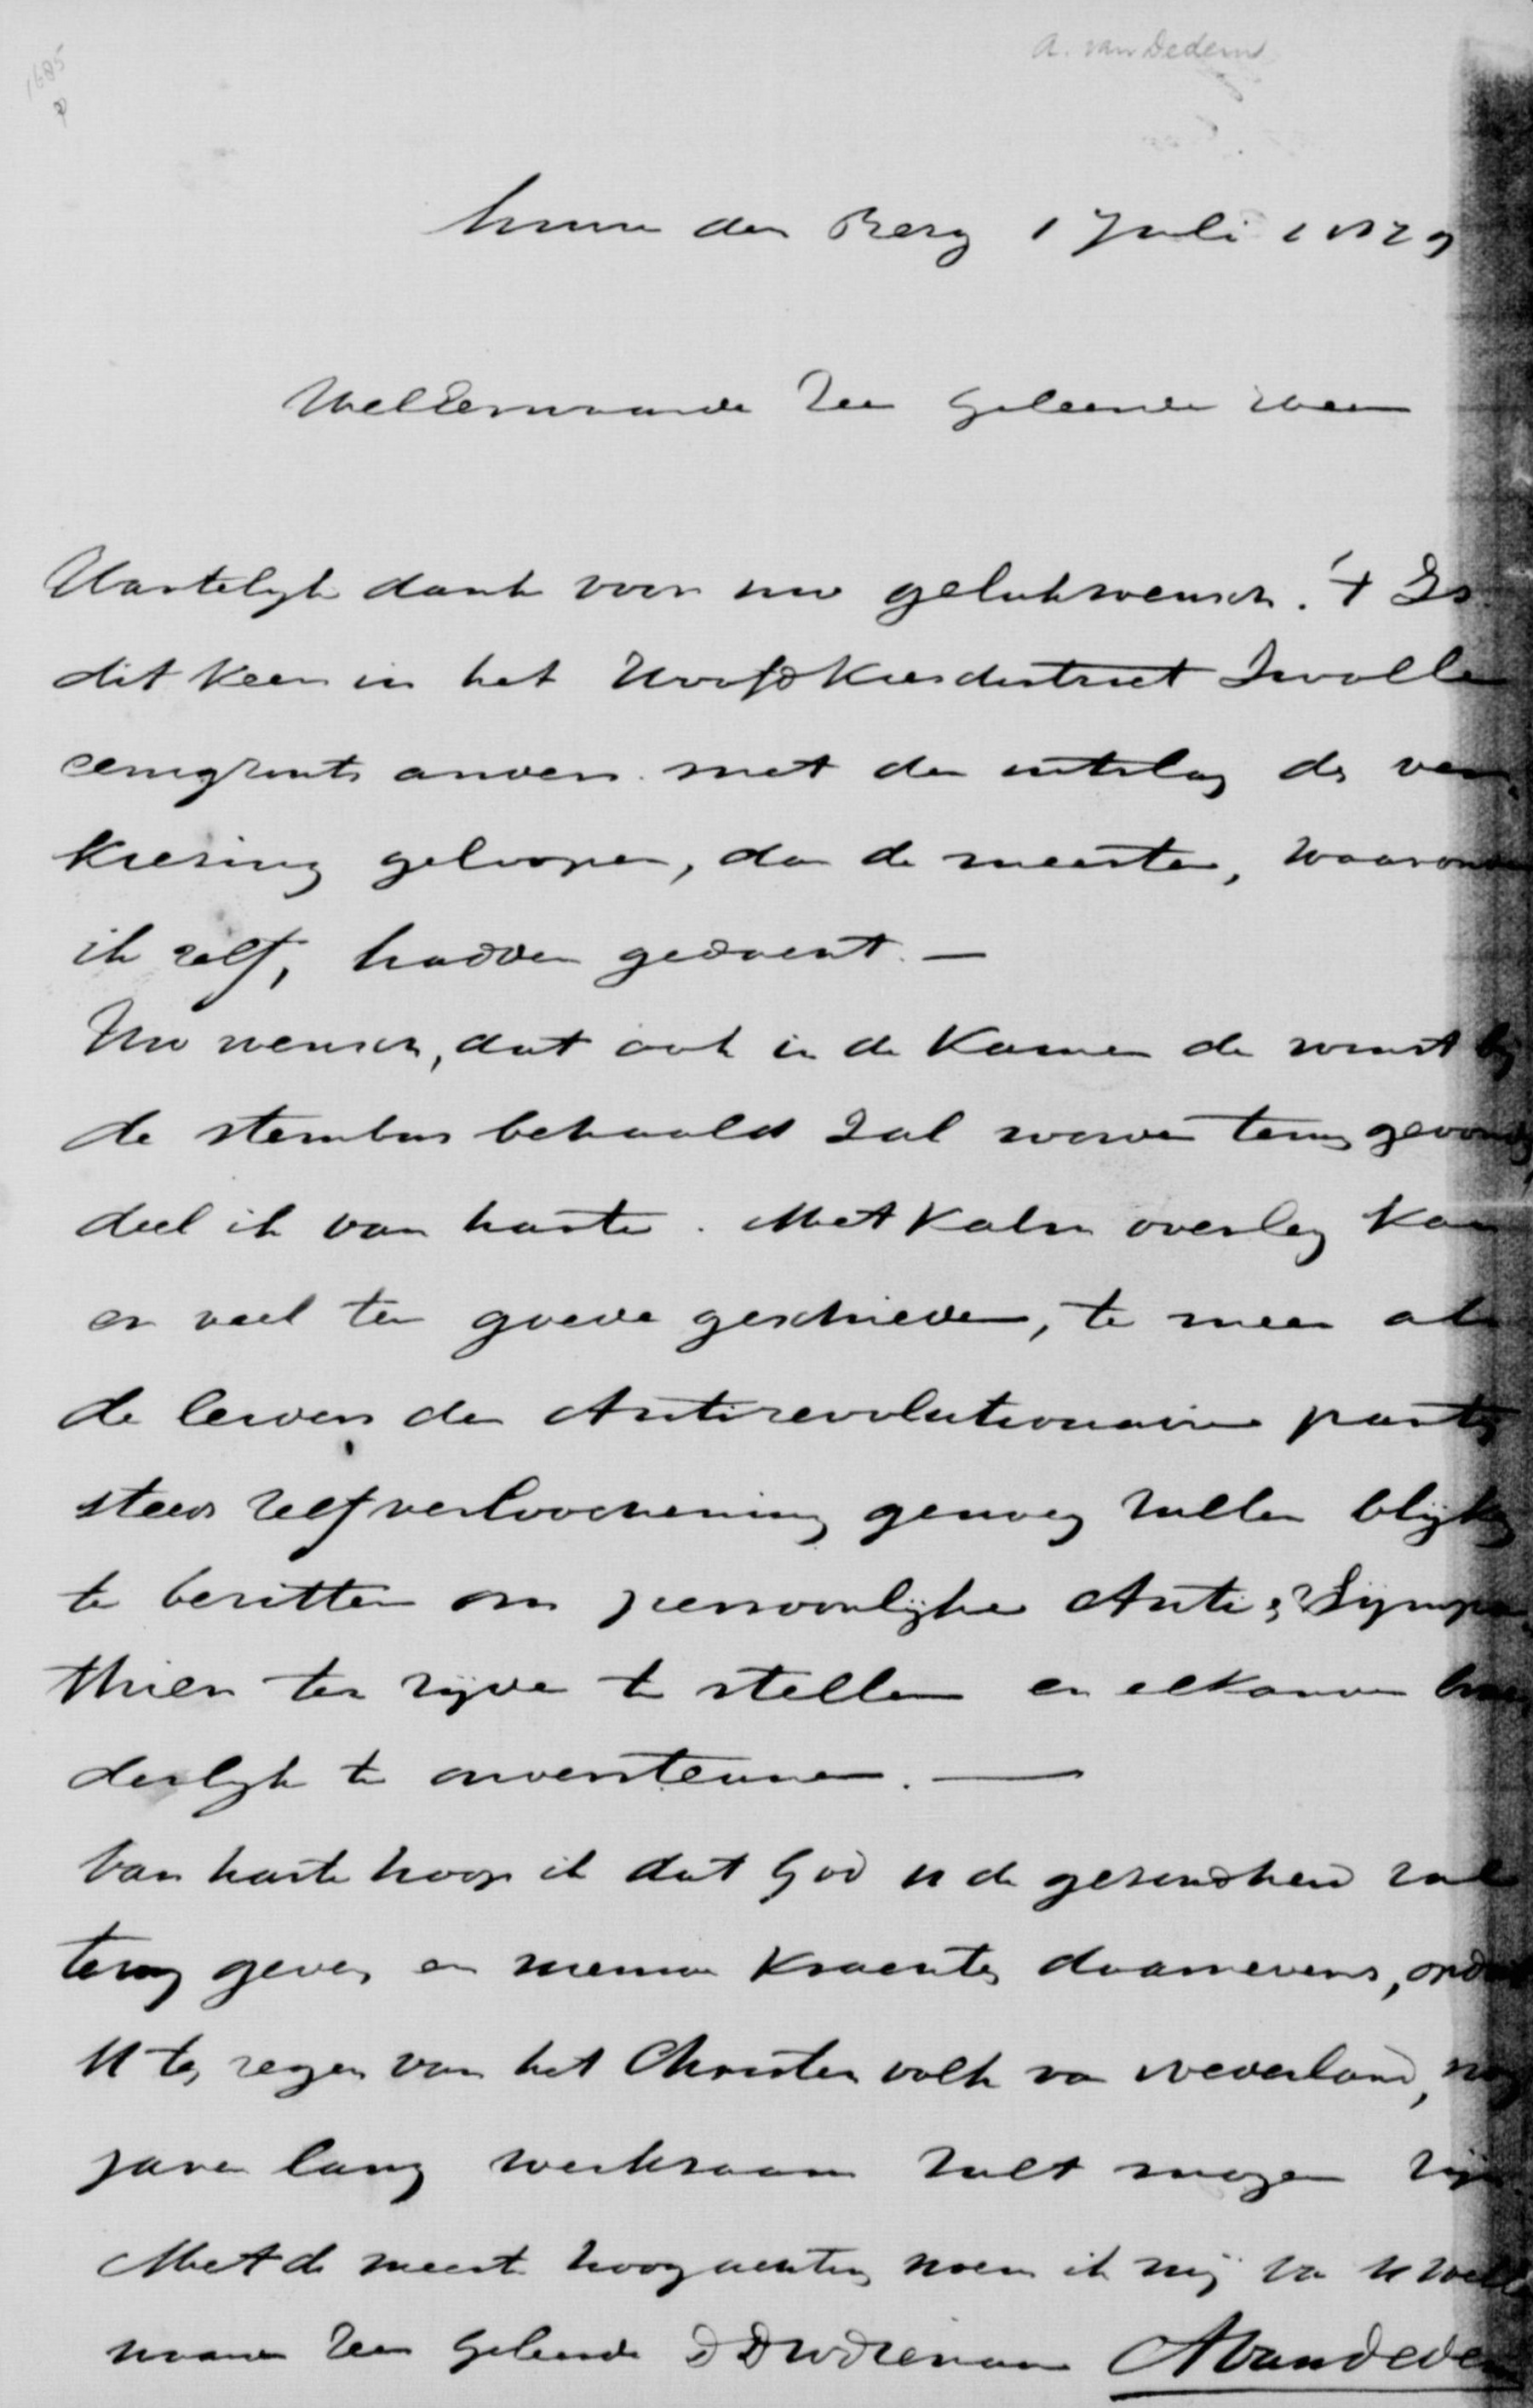 1685
A. van Dedem
huize den Berg 1 Juli 1879
WelEerwaarde Zeer Geleerde Heer
Hartelijk dank voor uw gelukwensch. 't Is
dit keer in het Hoofdkiesdistrict Zwolle
eenigzints anders met de uitslag der ver-
kiezing geloopen, dan de meesten, waaronder
ik zelf, hadden gedacht. —
Uw wensch, dat ook in de Kamer de winst bij
de stembus behaald zal worden terug gevonden
deel ik van harte. Met kalm overleg kan
er veel ten goede geschieden, te meer als
de leiders der Antirevolutionaire partij
steeds zelfverloochening genoeg zullen blijken
te bezitten om persoonlijke Anti- & Sympa-
thiën ter zijde te stellen en elkander broe-
derlijk te ondersteunen. —
Van harte hoop ik dat God u de gezondheid zal
terug geven en nieuwe krachten daarnevens, opdat
U ten zegen van het Christen volk van Nederland, nog
jaren lang werkzaam zult mogen zijn
Met de meeste hoogachting noem ik mij van U WelEer-
waarde Zeer Geleerde DDWDienaar AvanDedem